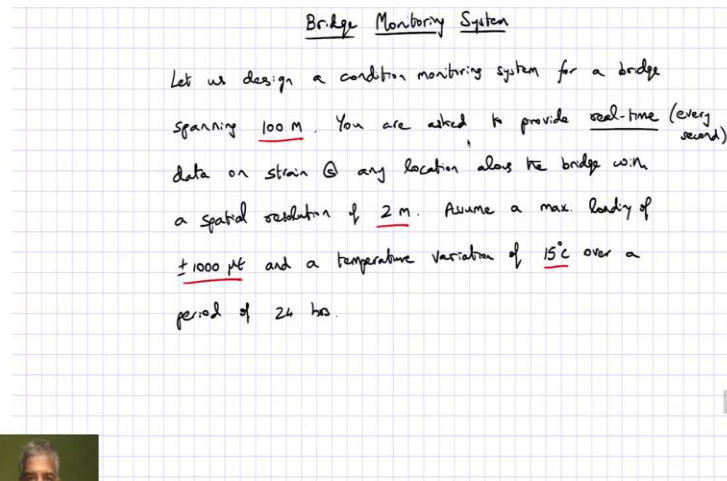 Bridge Monitoring System
Let us design a condition monitoring system for a bridge
spanning 100 M. You are asked to provide real-time (every
second)
data on strain @ any location along the bridge with
a spatial resolution of 2 m. Assume a max. loading of
± 1000 με and a temperature variation of 15°C over a
period of 24 hrs.